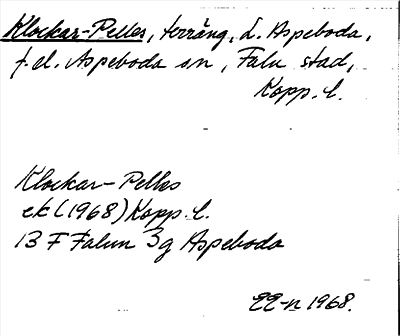 Klockar-Pelles, terräng, L. Aspeboda,
f.d. Aspeboda sn, Falu stad,
Kopp. l.
Klockar-Pelles
ek (1968) Kopp. l.
13 F Falun 3g Aspeboda
EE-n 1968.